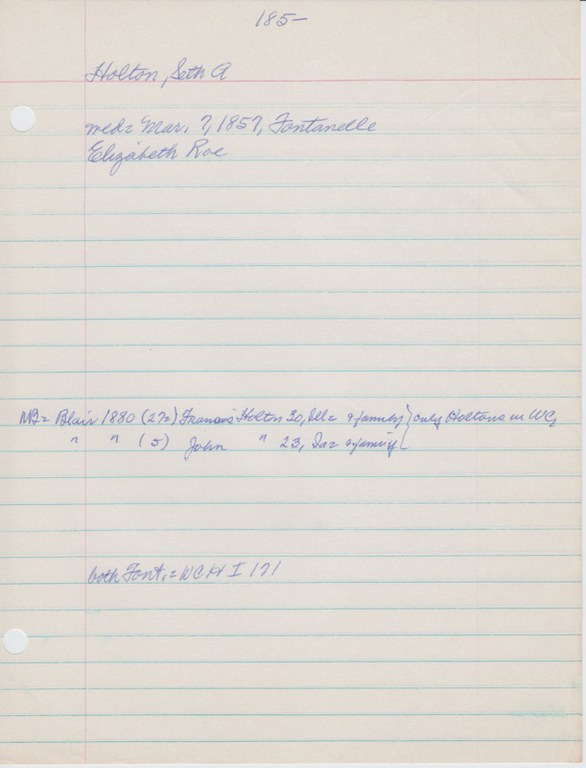 185-
Holton, Seth A
med= Mar. 7, 1857, Fontanelle
Elizabeth Roe
NB= Blair 1880 (27=) Francis Holton 30, Ill= & family } only Holtons in WC,
" " (5) John " 23, Ia= & family
both Font.= WCH I 171